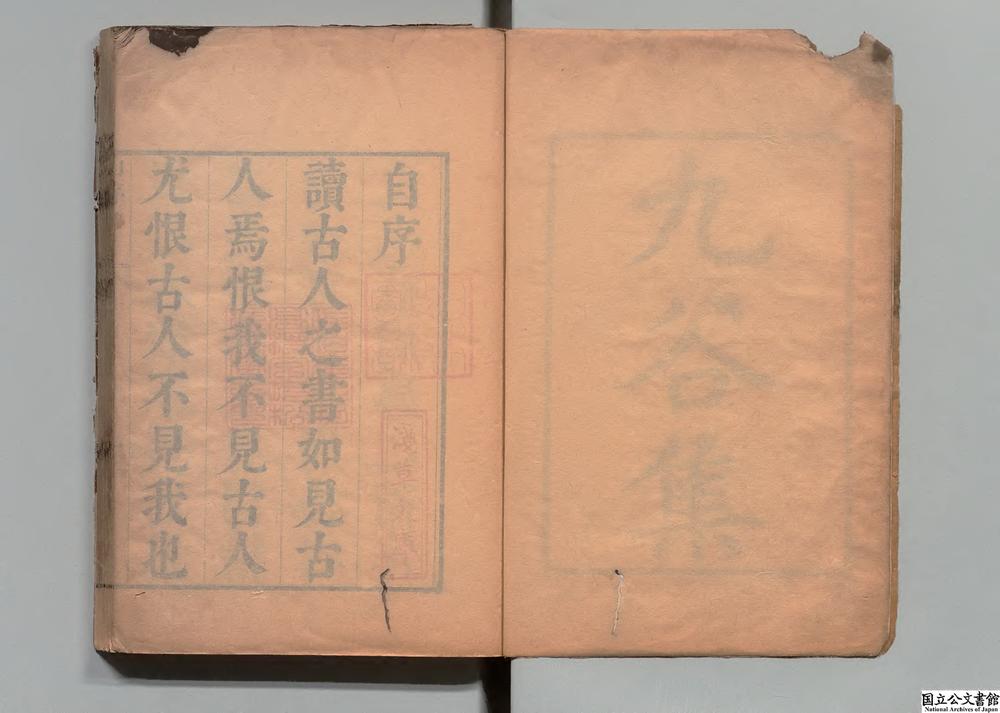 九谷集
自序
讀古人之書如見古
人焉恨我不見古人
尤恨古人不見我也
国立公文書館
National Archives of Japan